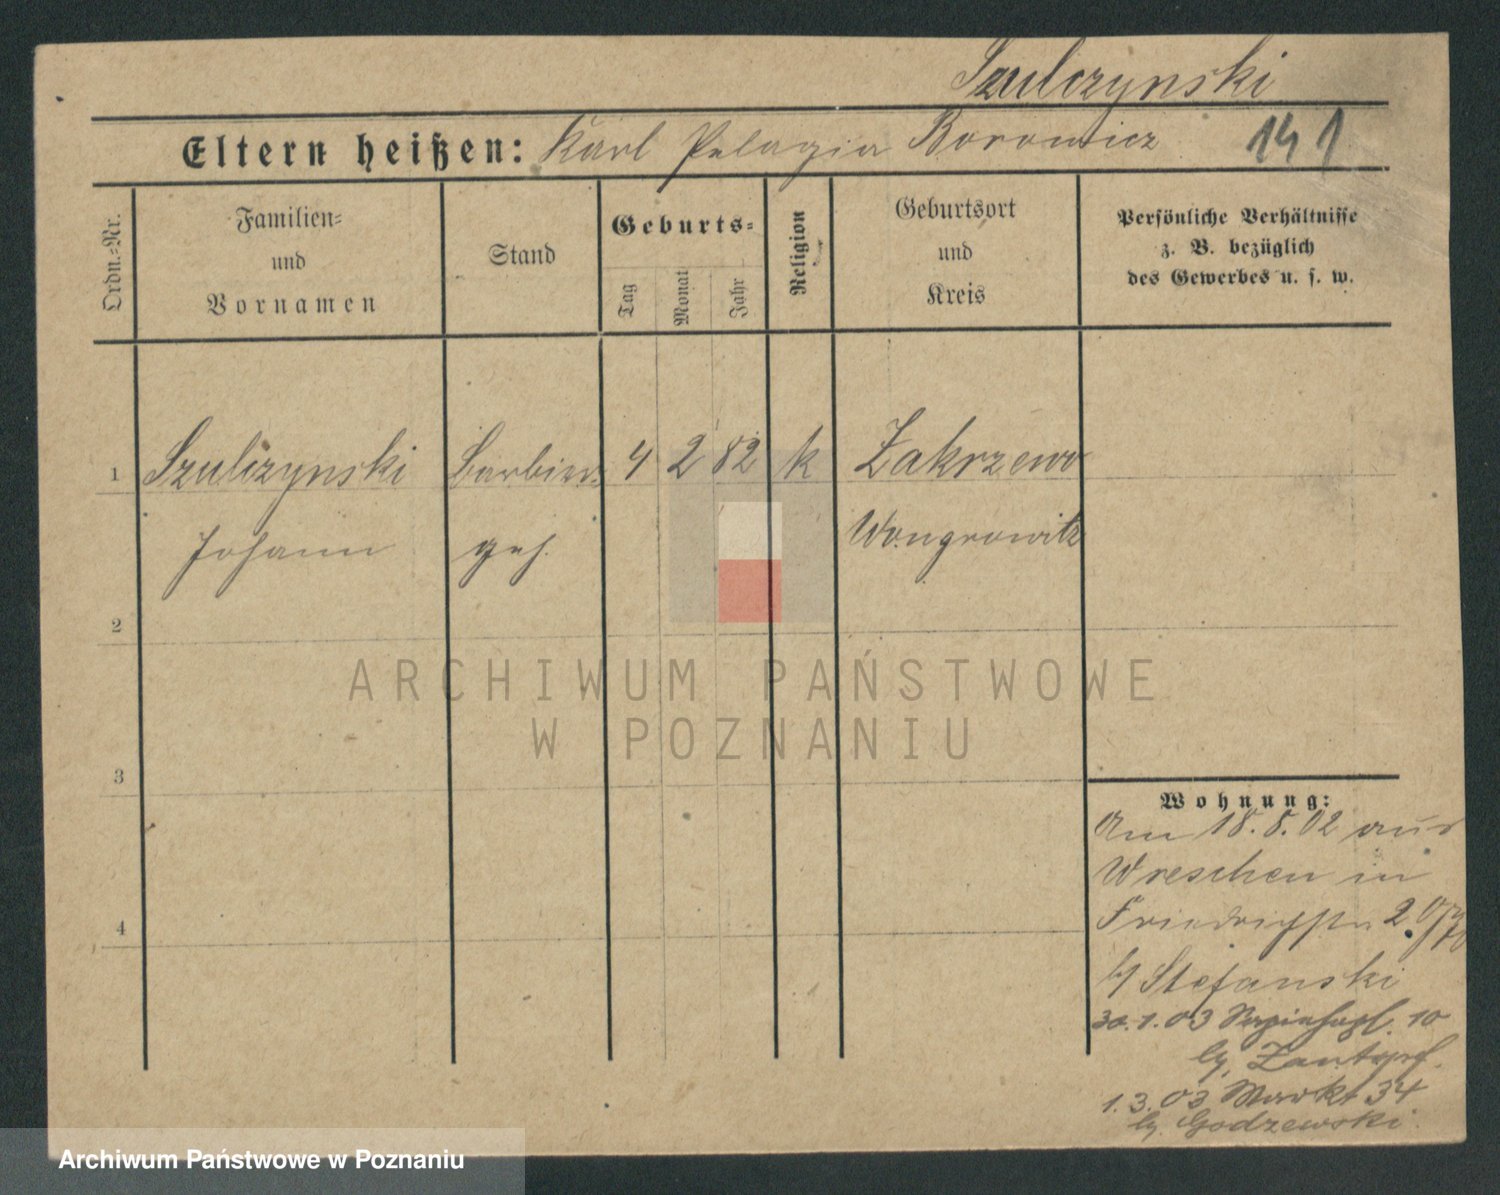 Szulczynski
Eltern heißen: Karl Pelagia Borowicz 141
Ordn.-Nr.
Familien-
und
Vornamen
Stand
Geburts-
Tag
Monat
Jahr
Religion
Geburtsort
und
Kreis
Persönliche Verhältnisse
z. B. bezüglich
des Gewerbes u. s. w.
1 Szulczynski Barbier- 4 2 82 k Zakrzewo
Johann geh. Wongrowitz
2
ARCHIWUM PAŃSTWOWE
W POZNANIU
3
Wohnung:
Am 18.8.02 aus
Wreschen in
Friedrichstr 2.
b/ Stefanski
30.1.03 10
b/
1.3.03 Markt 34
b/ Godzewski
4
Archiwum Państwowe w Poznaniu